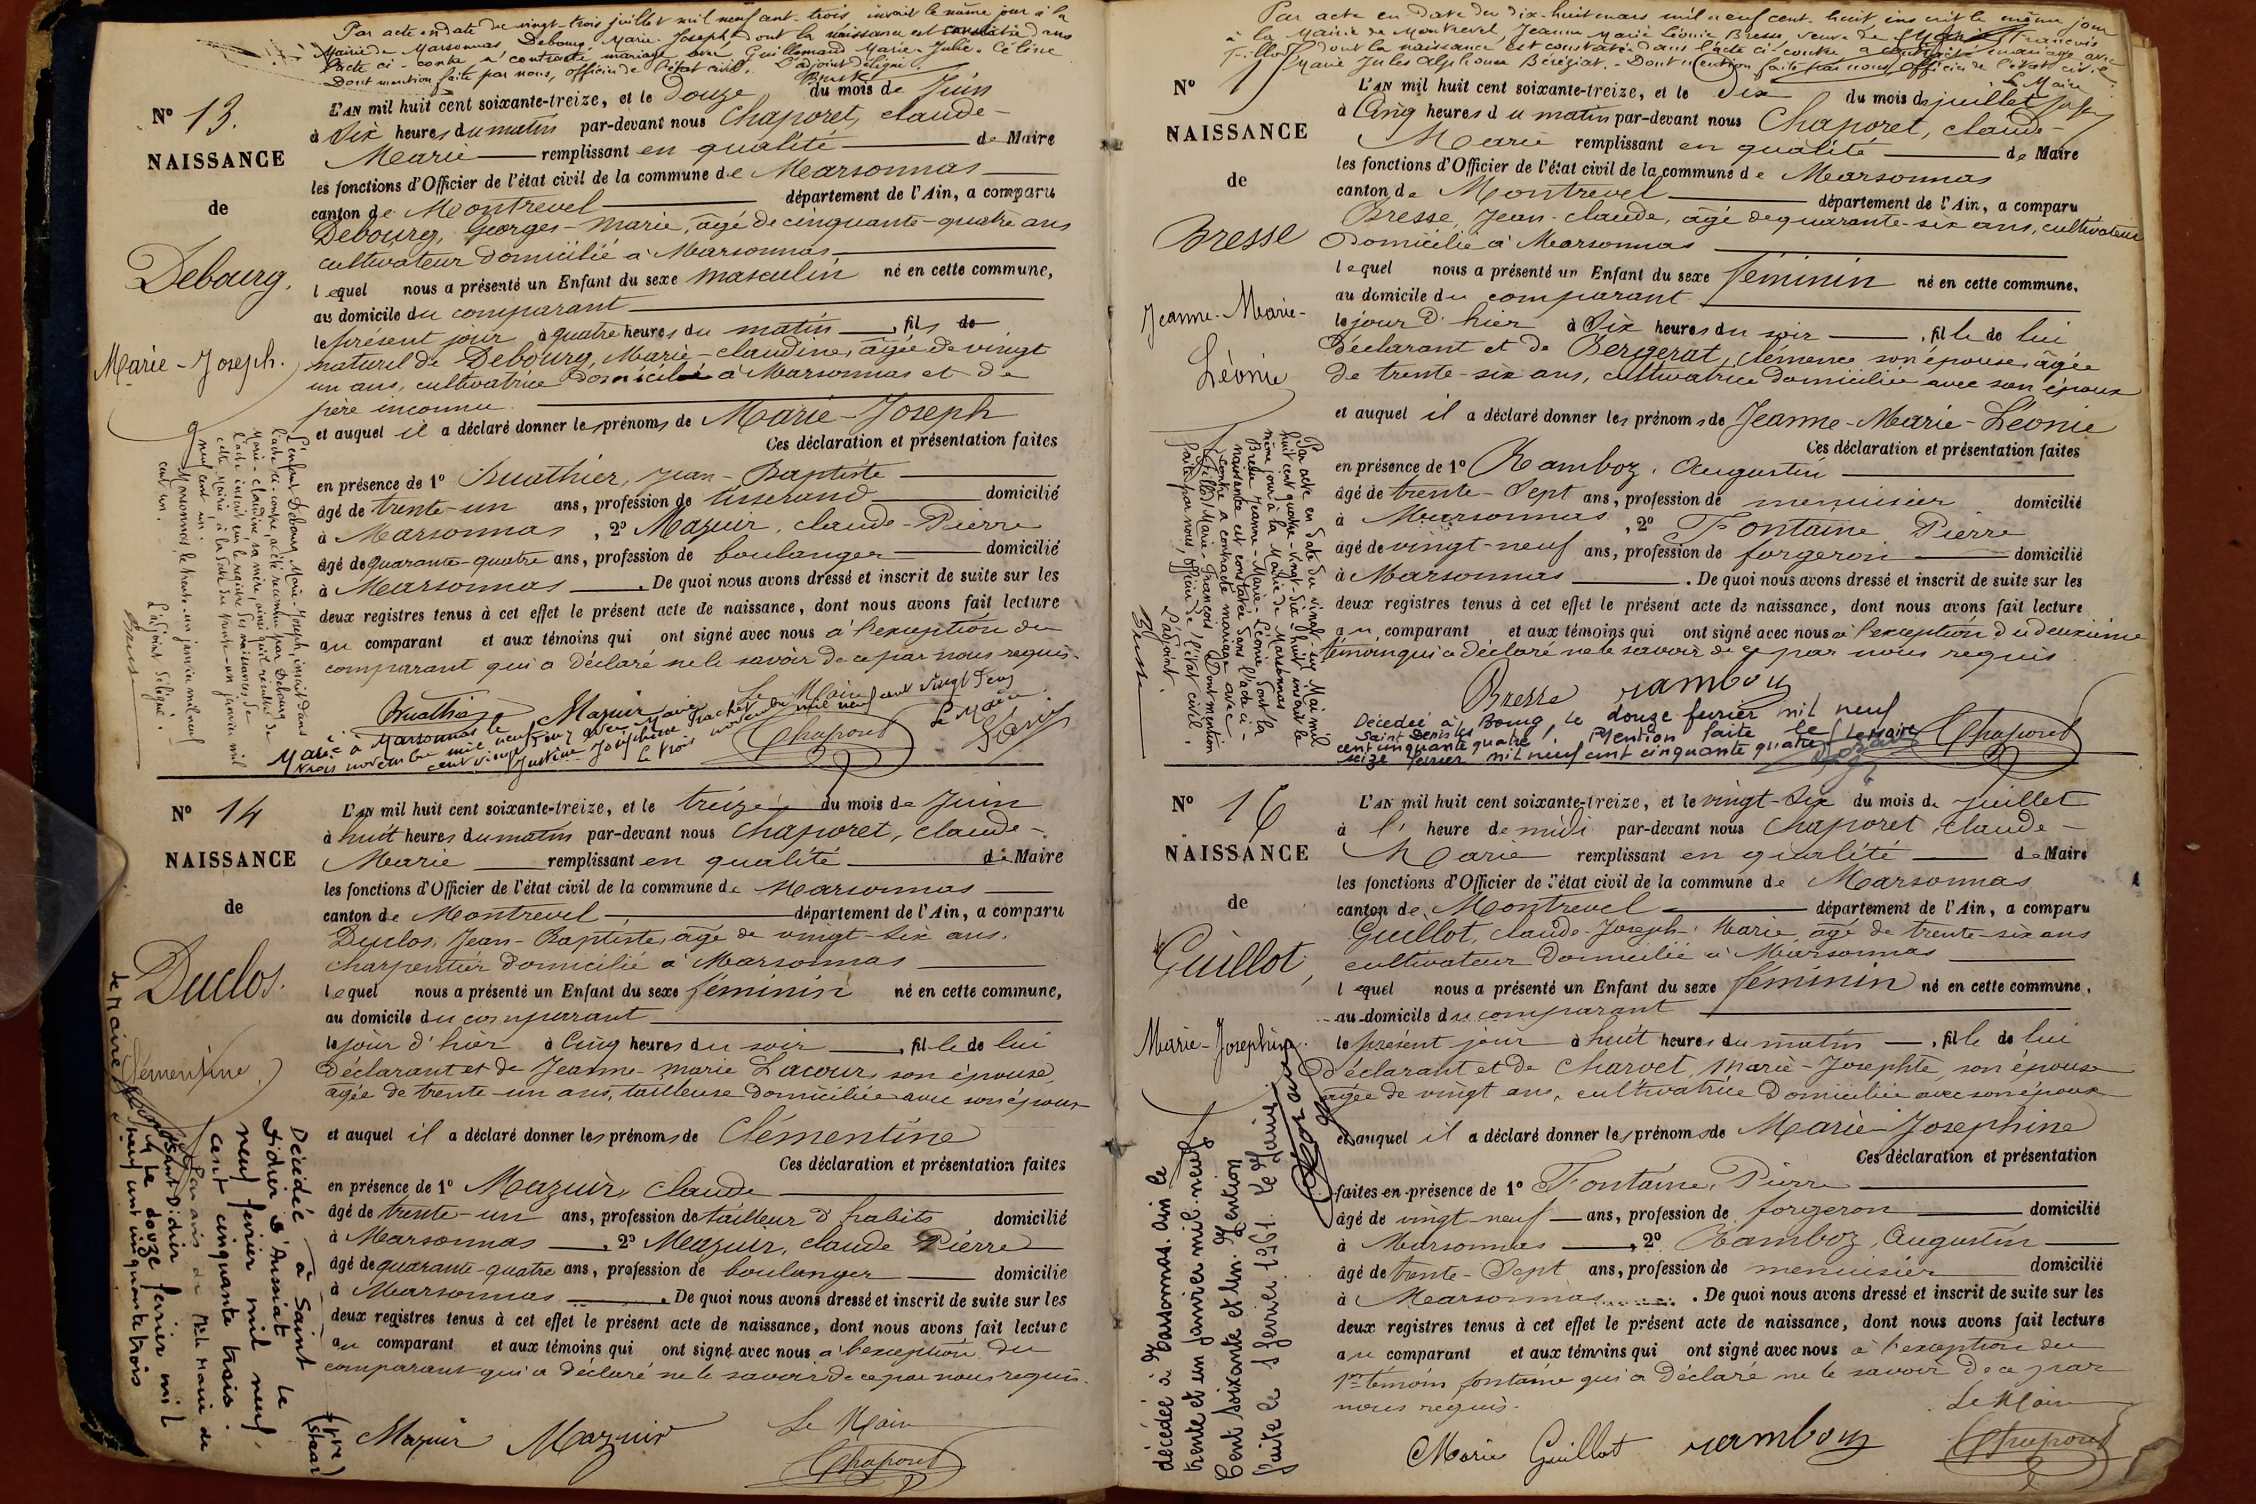 Par acte en date du vingt-trois juillet mil neuf cent-trois inscrit le même jour à la
Mairie de Marsonnas Debourg, Marie-Joseph dont la naissance est constatée dans
l'acte ci-contre a contracté mariage avec Guillemaud Marie-Julie-Céline
Dont mention faite par nous, officier de l'état civil. L'adjoint délégué.
N° 13.
NAISSANCE
de
Debourg.
Marie-Joseph.
L'AN mil huit cent soixante-treize, et le Douze du mois de Juin
à Six heures du matin par-devant nous Chaporet, claude-
Marie remplissant en qualité de Maire
les fonctions d'Officier de l'état civil de la commune de Marsonnas
canton de Montrevel département de l'Ain, a comparu
Debourg, Georges-Marie, âgé de cinquante-quatre ans
cultivateur domicilié à Marsonnas
lequel nous a présenté un Enfant du sexe masculin né en cette commune,
au domicile du comparant
le présent jour à quatre heures du matin, fils de
naturel de Debourg, Marie-claudine, âgée de vingt
un ans, cultivatrice domiciliée à Marsonnas et de
père inconnu
et auquel il a déclaré donner les prénoms de Marie-Joseph
Ces déclaration et présentation faites
en présence de 1° Buathier, Jean-Baptiste
âgé de trente-un ans, profession de tisserand domicilié
à Marsonnas, 2° Mazuir, claude-Pierre
âgé de quarante-quatre ans, profession de boulanger domicilié
à Marsonnas. De quoi nous avons dressé et inscrit de suite sur les
deux registres tenus à cet effet le présent acte de naissance, dont nous avons fait lecture
au comparant et aux témoins qui ont signé avec nous à l'exception du
comparant qui a déclaré ne le savoir de ce par nous requis.
Buathier Mazuir Le Maire
Chaporet
Marié à Marsonnas le
trois novembre mil neuf
cent vingt Deux avec
Justine Joséphine
le trois novembre mil neuf cent vingt Deux
Le Maire
L'enfant Debourg Marie-Joseph, inscrit dans
l'acte ci-contre, a été reconnu par Debourg
Marie-claudine, sa mère, ainsi qu'il résulte de
l'acte inscrit sur le registre des naissances de
cette Mairie, à la date du trente-un janvier mil
neuf cent un.
Marsonnas, le trente-un janvier mil neuf
cent un.
L'adjoint délégué.
N° 14
NAISSANCE
de
Duclos.
Clémentine
L'AN mil huit cent soixante-treize, et le treize du mois de Juin
à huit heures du matin par-devant nous Chaporet, Claude-
Marie remplissant en qualité de Maire
les fonctions d'Officier de l'état civil de la commune de Marsonnas
canton de Montrevel département de l'Ain, a comparu
Duclos, Jean-Baptiste, âgé de vingt-six ans,
charpentier domicilié à Marsonnas
lequel nous a présenté un Enfant du sexe féminin né en cette commune,
au domicile du comparant
le jour d'hier à Cinq heures du soir, fille de lui
Déclarant et de Jeanne-Marie Lacour, son épouse,
âgée de trente-un ans, tailleuse domiciliée avec son époux
et auquel il a déclaré donner les prénoms de Clémentine
Ces déclaration et présentation faites
en présence de 1° Mazuir, Claude
âgé de trente-un ans, profession de tailleur d'habits domicilié
à Marsonnas, 2° Mazuir, claude Pierre
âgé de quarante-quatre ans, profession de boulanger domicilié
à Marsonnas. De quoi nous avons dressé et inscrit de suite sur les
deux registres tenus à cet effet le présent acte de naissance, dont nous avons fait lecture
au comparant et aux témoins qui ont signé avec nous à l'exception du
comparant qui a déclaré ne le savoir de ce par nous requis.
Mazuir Mazuir Le Maire
Chaporet
Décédée à Saint
Didier d'Aussiat le
neuf février mil neuf
cent cinquante trois.
Par avis de Mr le Maire de
Saint Didier
le douze février mil
neuf cent cinquante trois
Le Maire
Par acte en date du dix-huit mars mil neuf cent-huit, inscrit le même jour
à la Mairie de Montrevel, Jeanne Marie Léonie Bresse, veuve de Marie François
Fillod, dont la naissance est constatée dans l'acte ci-contre a contracté mariage avec
Marie Jules Alphonse Béréziat. Dont mention faite par nous, Officier de l'état civil.
Le Maire
N° 15
NAISSANCE
de
Bresse
Jeanne-Marie-
Léonie
L'AN mil huit cent soixante-treize, et le dix du mois de juillet
à Cinq heures du matin par-devant nous Chaporet, claude-
Marie remplissant en qualité de Maire
les fonctions d'Officier de l'état civil de la commune de Marsonnas
canton de Montrevel département de l'Ain, a comparu
Bresse, Jean-claude, âgé de quarante-six ans, cultivateur
Domicilié à Marsonnas
lequel nous a présenté un Enfant du sexe féminin né en cette commune,
au domicile du comparant
le jour d'hier à Six heures du soir, fille de lui
Déclarant et de Bergerat, Clémence son épouse, âgée
de trente-six ans, cultivatrice domiciliée avec son époux
et auquel il a déclaré donner les prénoms de Jeanne-Marie-Léonie
Ces déclaration et présentation faites
en présence de 1° Ramboz, Augustin
âgé de trente-sept ans, profession de menuisier domicilié
à Marsonnas, 2° Fontaine Pierre
âgé de vingt-neuf ans, profession de forgeron domicilié
à Marsonnas. De quoi nous avons dressé et inscrit de suite sur les
deux registres tenus à cet effet le présent acte de naissance, dont nous avons fait lecture
au comparant et aux témoins qui ont signé avec nous à l'exception du deuxième
témoin qui a déclaré ne le savoir de ce par nous requis
Bresse ramboz
Chaporet
Décédée à Bourg, le douze février mil neuf
Saint Denis lès
cent cinquante quatre, Mention faite le
seize février mil neuf cent cinquante quatre Le Maire
Par acte en date du vingt-un Mai mil
huit cent quatre-vingt-dix huit inscrit le
même jour à la Mairie de Marsonnas
Bresse Jeanne-Marie-Léonie dont la
naissance est constatée dans l'acte ci-
contre a contracté mariage avec
Fillod Marie-François. Dont mention
faite par nous, officier de l'état civil.
L'adjoint.
N° 16
NAISSANCE
de
Guillot,
Marie-Joséphine.
L'AN mil huit cent soixante-treize, et le vingt-six du mois de juillet
à l' heure de midi par-devant nous Chaporet, Claude-
Marie remplissant en qualité de Maire
les fonctions d'Officier de l'état civil de la commune de Marsonnas
canton de Montrevel département de l'Ain, a comparu
Guillot, claude-Joseph-Marie, âgé de trente-six ans
cultivateur Domicilié à Marsonnas
lequel nous a présenté un Enfant du sexe féminin né en cette commune,
au domicile du comparant
le présent jour à huit heures du matin, fille de lui
Déclarant et de Charvet, Marie-Josephte, son épouse
âgée de vingt ans, cultivatrice Domiciliée avec son époux
et auquel il a déclaré donner les prénoms de Marie-Josephine
Ces déclaration et présentation
faites en présence de 1° Fontaine, Pierre
âgé de vingt-neuf ans, profession de forgeron domicilié
à Marsonnas, 2° Ramboz, Augustin
âgé de trente-Sept ans, profession de menuisier domicilié
à Marsonnas. De quoi nous avons dressé et inscrit de suite sur les
deux registres tenus à cet effet le présent acte de naissance, dont nous avons fait lecture
au comparant et aux témoins qui ont signé avec nous à l'exception du
1er témoin fontaine qui a déclaré ne le savoir de ce par
nous requis.
Le Maire
Marie Guillot ramboz Chaporet
décédée à Marsonnas. Ain le
trente et un janvier mil-neuf
Cent soixante et un. Mention
faite le 1 février 1961. Le Maire